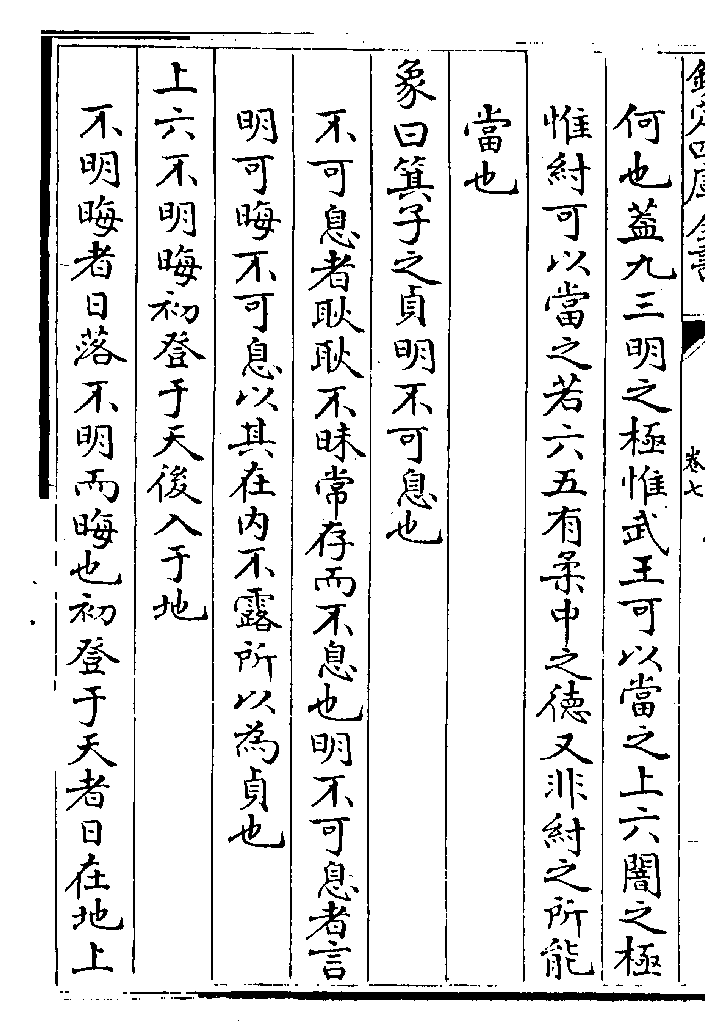 欽定四庫全書
卷七
何也葢九三明之極惟武王可以當之上六闇之極
惟紂可以當之若六五有柔中之徳又非紂之所能
當也
象曰箕子之貞明不可息也
不可息者耿耿不昧常存而不息也明不可息者言
明可晦不可息以其在内不露所以為貞也
上六不明晦初登于天後入于地
不明晦者日落不明而晦也初登于天者日在地上